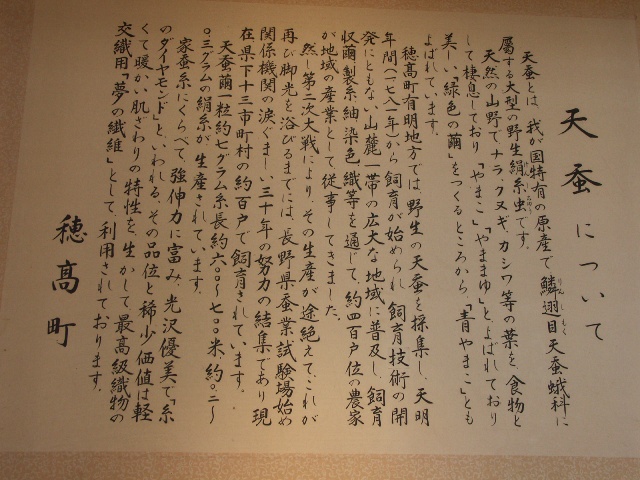 天蚕について
天蚕とは、我が国特有の原産で鱗翅目天蚕蛾科に
属する大型の野生絹糸虫です。
天然の山野で、ナラ、クヌギ、カシワ等の葉を、食物と
して棲息しており「やまこ」「やままゆ」とよばれており
美しい「緑色の繭」をつくるところから、「青やまこ」とも
よばれています。
穂高町有明地方では、野生の天蚕を採集し、天明
年間(一七八一年)から飼育が始められ、飼育技術の開
発にともない山麓一帯の広大な地域に普及し、飼育
収繭製糸紬染色織等を通じて、約四百戸位の農家
が地域の産業として従事してきました。
然し第二次大戦により、その生産が途絶えて、これが
再び脚光を浴びるまでには、長野県蚕業試験場始め
関係機関の涙ぐましい三十年の努力の結集であり現
在県下十三市町村の約百戸で飼育されています。
天蚕繭一粒約七グラム糸長約六〇〇〜七〇〇米、約〇.二〜
〇.三グラムの絹糸が生産されています。
家蚕糸にくらべて、強伸力に富み、光沢優美で「糸
のダイヤモンド」といわれる、その品位と稀少価値は軽
くて暖かい肌ざわりの特性を、生かして最高級織物の
交織用「夢の繊維」として、利用されております。
穂高町